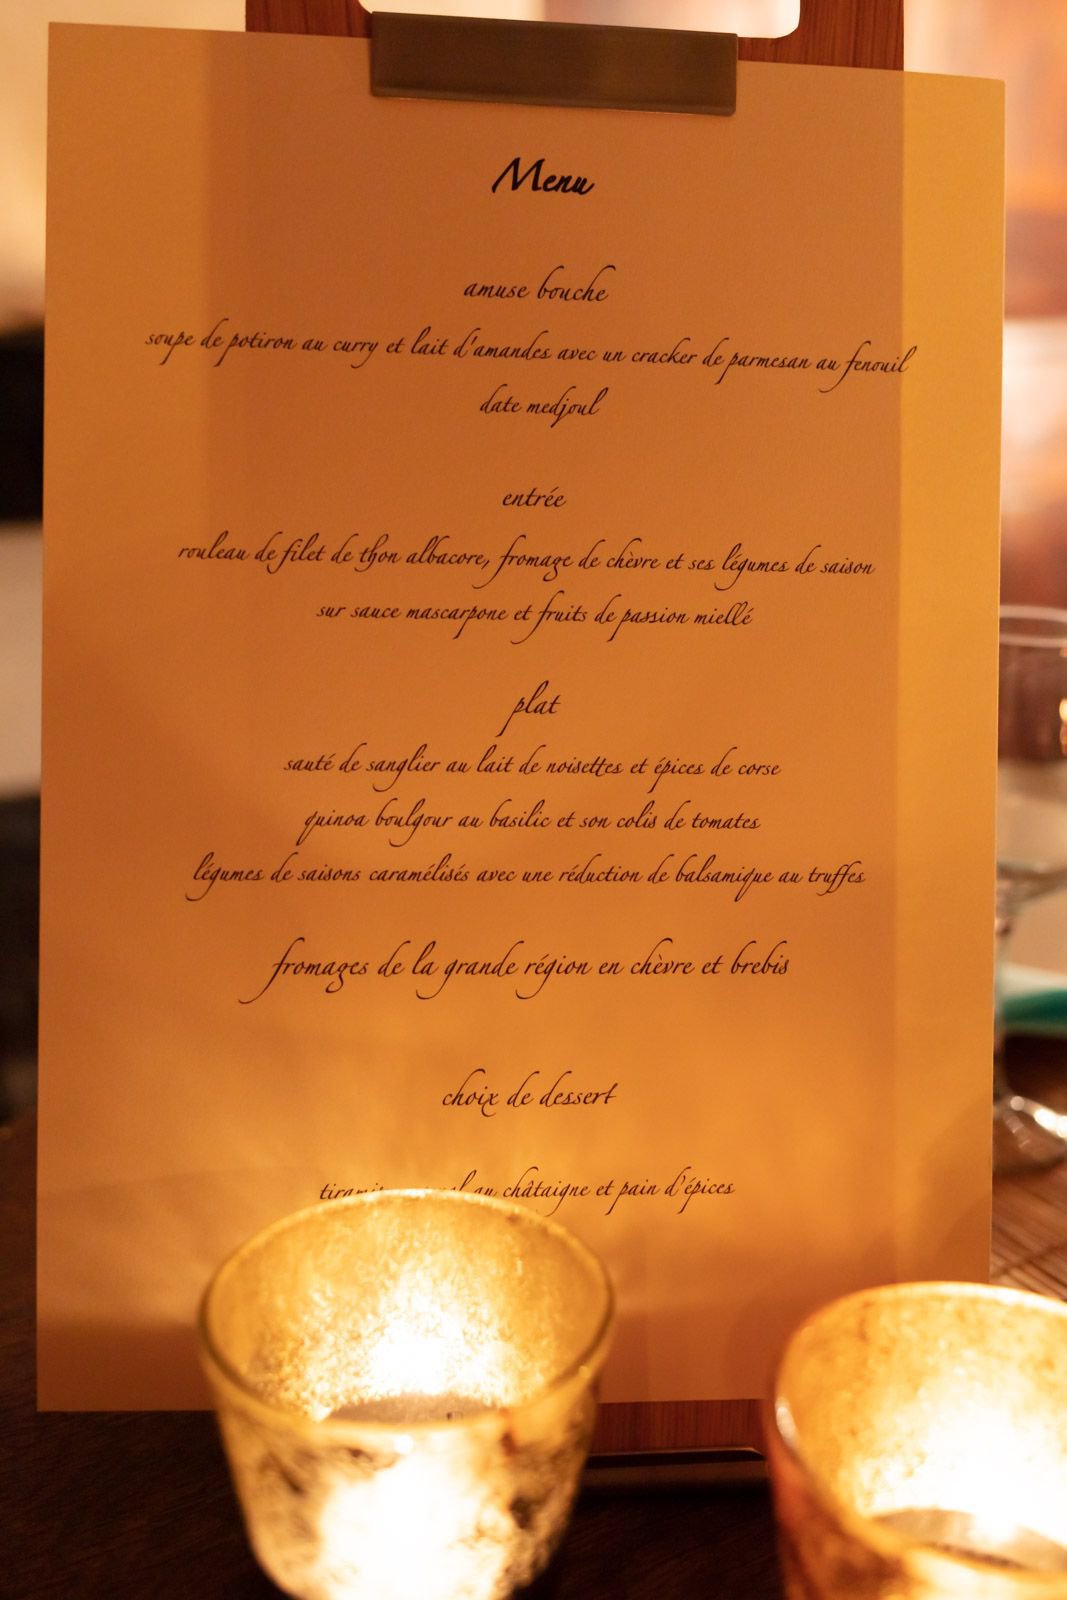 Menu
amuse bouche
soupe de potiron au curry et lait d'amandes avec un cracker de parmesan au fenouil
date medjoul
entrée
rouleau de filet de thon albacore, fromage de chèvre et ses légumes de saison
sur sauce mascarpone et fruits de passion miellé
plat
sauté de sanglier au lait de noisettes et épices de corse
quinoa boulgour au basilic et son colis de tomates
légumes de saisons caramélisés avec une réduction de balsamique au truffes
fromages de la grande région en chèvre et brebis
choix de dessert
au châtaigne et pain d'épices